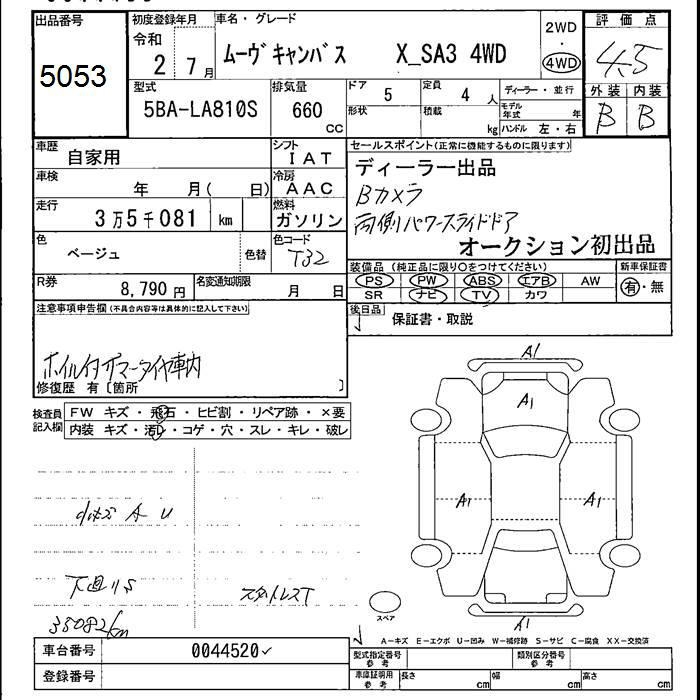 出品番号
5053
初度登録年月
令和
2 7月
車名・グレード
ムーヴキャンバス X_SA3 4WD
2WD
・
4WD
評価点
4.5
外装 内装
B B
型式
5BA-LA810S
排気量
660
cc
ドア
5
定員
4 人
形状
積載
kg
ディーラー・並行
モデル
年式 年
ハンドル 左・右
車歴
自家用
シフト
IAT
車検
年 月( 日)
冷房
AAC
走行
3万5千081 km
燃料
ガソリン
色
ベージュ
色替
色コード
T32
R券
8,790 円
名変通知期限
月 日
セールスポイント(正常に機能するものに限ります)
ディーラー出品
Bカメラ
両側パワースライドドア
オークション初出品
装備品(純正品に限り○をつけてください)
新車保証書
PS PW ABS エアB AW
SR ナビ TV カワ
有・無
後日品
保証書・取説
注意事項申告欄(不具合内容等は具体的に記入して下さい)
ホイル付サマータイヤ車内
修復歴 有〔箇所 〕
検査員
記入欄
FW キズ・飛石・ヒビ割・リペア跡・×要
内装 キズ・汚れ・コゲ・穴・スレ・キレ・破レ
小キズ A U
下廻りS
スタットレスT
35082km
A1
A1
A1
A1
A1
スペア
A―キズ E―エクボ U―凹み W―補修跡 S―サビ C―腐食 XX―交換済
車台番号
0044520✓
登録番号
型式指定番号
参考
類別区分番号
参考
車庫証明用
参考
長さ cm
幅 cm
高さ cm